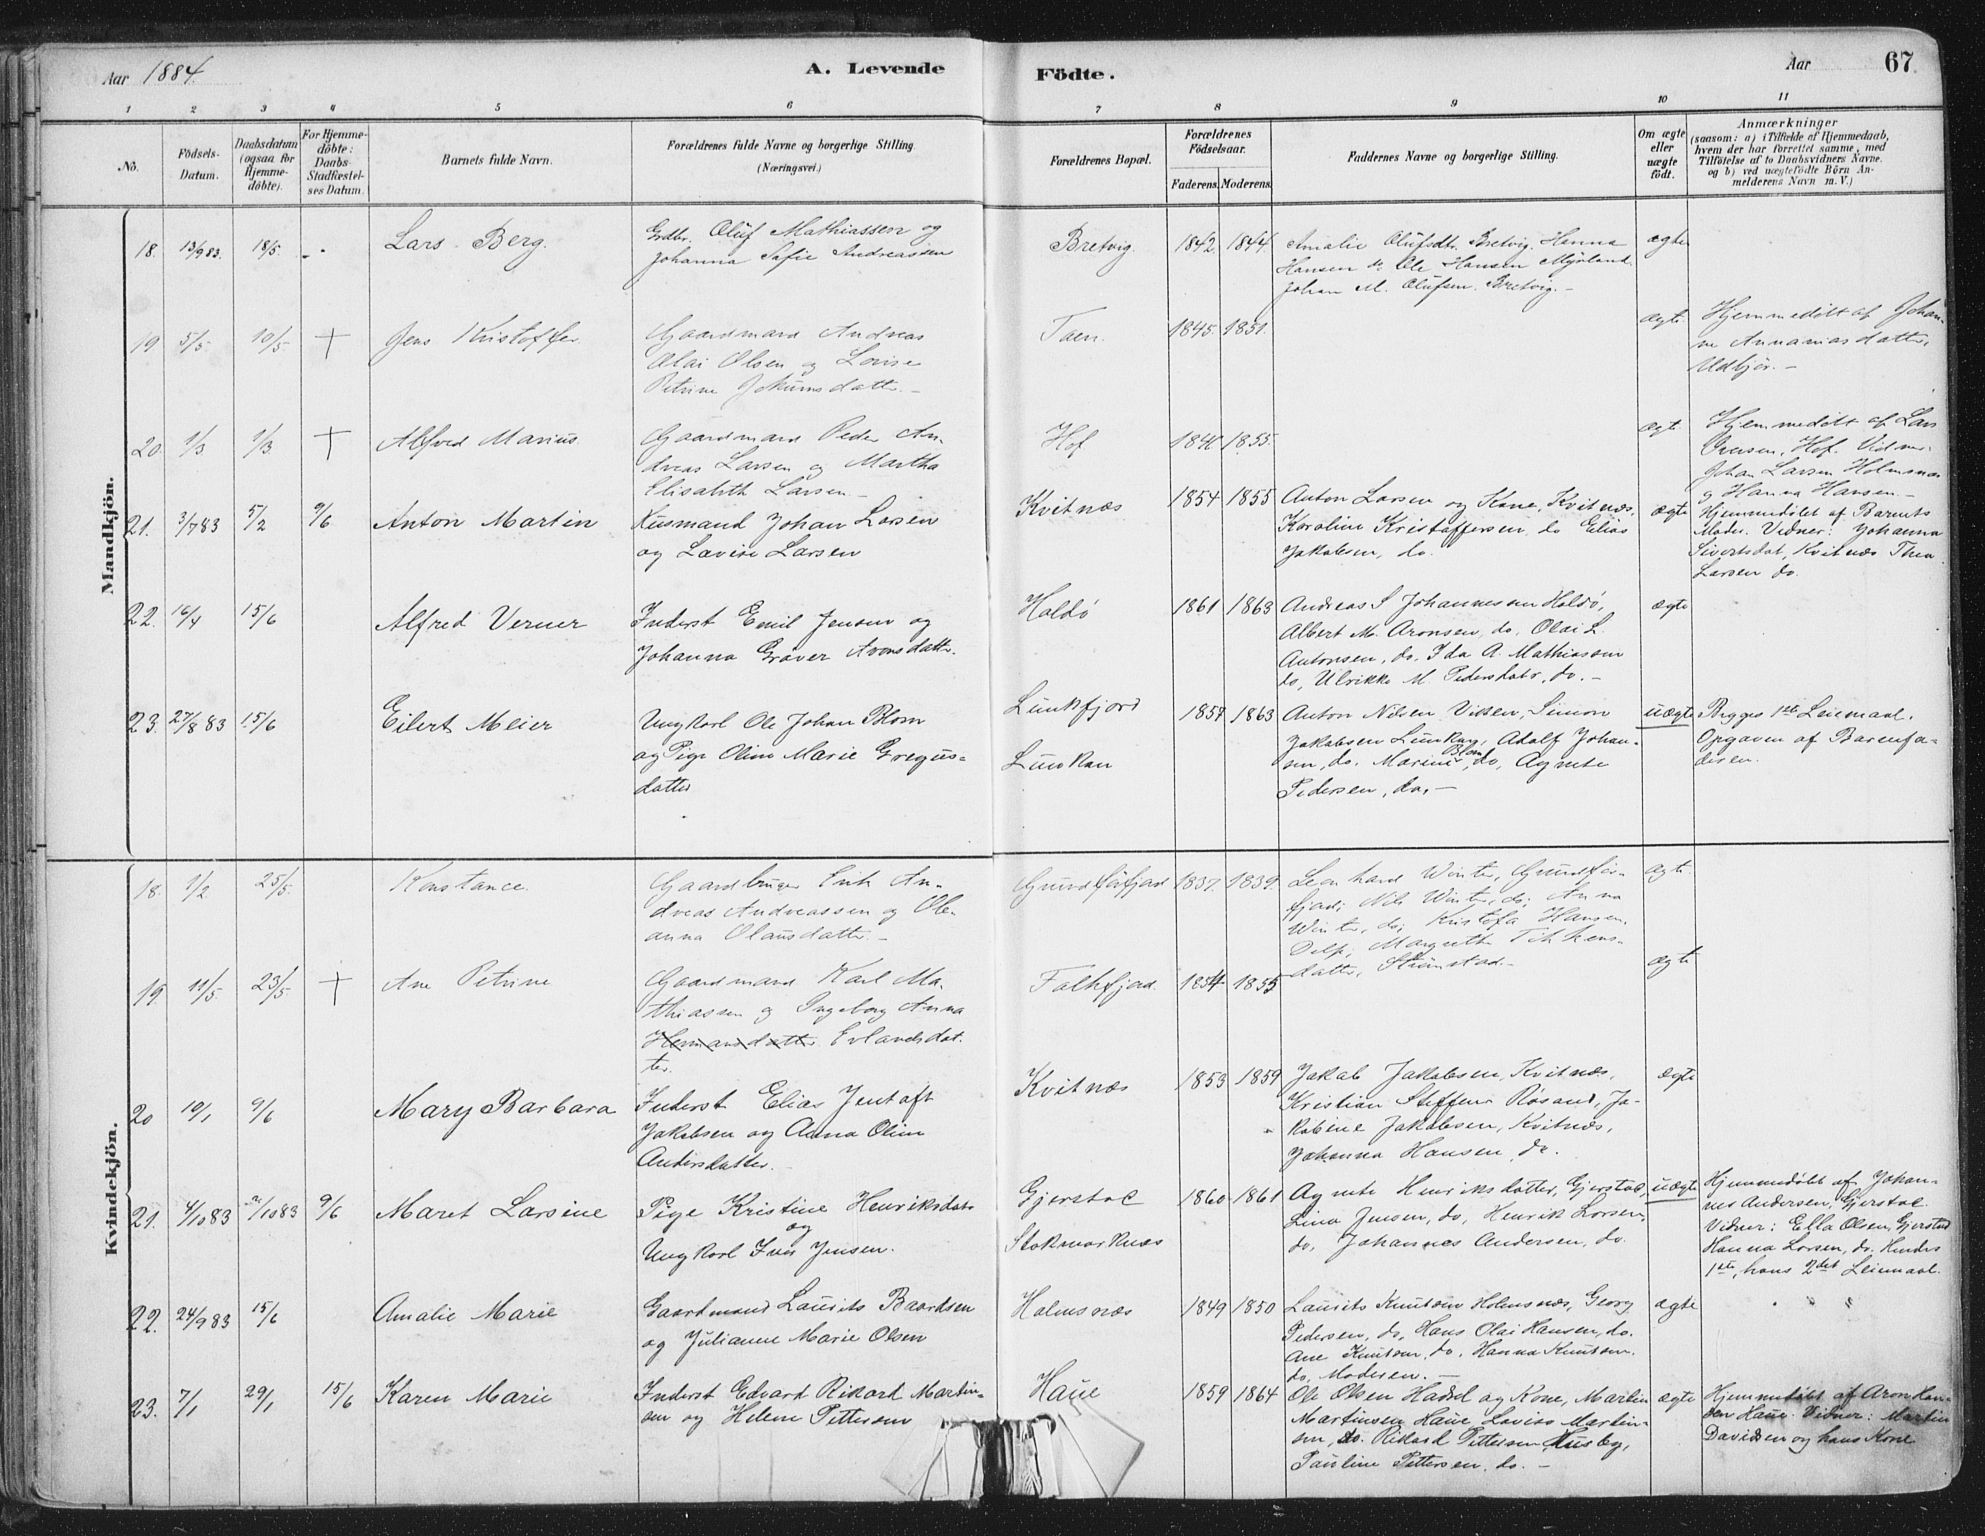 Aar 1884.
A. Levende
Födte.
Aar
67
1 2 3 4 5 6 7 8 9 10 11
No.
Födsels-
Datum.
Daabsdatum
(ogsaa for
Hjemme-
döbte).
For Hjemme-
döbte:
Daabs-
Stadfæstel-
ses Datum.
Barnets fulde Navn.
Forældrenes fulde Navne og borgerlige Stilling.
(Næringsvei.)
Forældrenes Bopæl.
Forældrenes
Födselsaar.
Faderens. Moderens.
Faddernes Navne og borgerlige Stilling.
Om ægte
eller
uægte
födt.
Anmærkninger
(saasom: a) i Tilfælde af Hjemmedaab,
hvem der har forrettet samme, med
Tilföielse af to Daabsvidners Navne.
og b) ved uægtefödte Börn An-
melderens Navn m. V.)
Mandkjön.
18. 13/9 83. 18/5. - Lars Berg.
Grdbr. Oluf Mathiassen og
Johanna Sofie Andreassen
Bretvig 1842. 1844.
Amalie Olufsdtr. Bretvig. Hanna
Hansen do Ole Hansen Myrland.
Johan M. Olufsen. Bretvig. -
ægte
19 5/5 10/5. + Jens Kristoffer
Gaardmand Andreas
Olai Olsen og Lovise
Petrine Jokumsdatter. -
Taen. 1845. 1851.
ægte
Hjemmedöbt af Johan-
ne Annaniasdatter,
Uldbjör. -
20. 1/3 9/3. + Alfred Marius.
Gaardmand Peder An-
dreas Larsen og Martha
Elisabeth Larsen. -
Hof 1841 1855.
ægte
Hjemmedöbt af Lars
Hof. Vidner:
Johan Larsen Holmsnæs
og Hanna Hansen. -
21. 3/7 83 5/2 9/6 Anton Martin
Husmand Johan Larsen
og Lovise Larsen
Kvitnæs 1854 1855
Anton Larsen og Kone, Kvitnæs,
Karoline Kristoffersen, do Elias
Jakobsen, do.
ægte
Hjemmedöbt af Barnets
Moder. Vidner: Johanna
Sivertsdat, Kvitnæs Thea
Larsen do.
22. 16/4 15/6 Alfred Verner
Inderst Emil Jensen og
Johanna Gröver Aronsdatter.
Haldö 1861 1863
Andreas S Johannessen Haldö,
Albert M. Aronsen, do. Olai L.
Antonsen, do. Ida A. Mathiassen
do, Ulrikke M. Pedersdatr, do. -
ægte
23. 27/8 83 15/6 Eilert Meier
Ungkarl Ole Johan Blom
og Pige Oline Marie Gregus-
datter
Lunkfjord
Lunkan
1857 1863
Anton Nilsen Simon
Jakobsen Lunkan, Adolf Johan-
sen, do. Marine Blom, do, Agnete
Pedersen, do. -
uægte
Begges 1ste Leiemaal.
Opgaven af Barnefa-
deren.
Kvindekjön.
18. 1/2 25/5. Konstance.
Gaardbruger Erik An-
dreas Andreassen og Ole-
anna Olausdatter. -
Grundförfjord 1837. 1839.
Leonhard Winter, Grundför-
fjord; Nils Winter, do; Anna
Winter, do; Kristofa Hansen.
Delp; Margrethe
datter, Strömstad. -
ægte.
19. 11/5 23/5 + Ane Petrine
Gaardmand Karl Ma-
thiassen og Ingeborg Anna
Hermansdatter Erlandsdat-
ter.
Falkfjord. 1854 1855
ægte
20 10/1 9/6 Mary Barbara
Inderst Elias Jentoft
Jakobsen og Anna Oline
Andersdatter. -
Kvitnæs 1853 1859
Jakob Jakobsen Kvitnæs,
Kristian Steffens Rösand, Ja-
kobine Jakobsen, Kvitnæs,
Johanna Hansen, do.
ægte
21. 4/10 83 21/10 83 9/6 Maret Larsine
Pige Kristine Henriksdatr
og
Ungkarl Iver Jensen.
Gjerstad
Stokmarknæs
1860 1861
Agnete Henriksdatter, Gjerstad,
Lina Jensen, do, Henrik Larsen,
do, Johannes Andersen, do.
uægte
Hjemmedöbt af Johan-
nes Andersen, Gjerstad.
Vidner: Ella Olsen, Gjerstad
Hanna Larsen, do. Hendes
1ste, hans 2det Leiemaal.
22. 24/9 83 15/6 Amalie Marie
Gaardmand Laurits Baardsen
og Julianne Marie Olsen
Holmsnæs 1849 1850
Laurits Knutsen Holmsnæs, Georg
Pedersen, do, Hans Olai Hansen, do.
Ane Knutsen, do, Hanna Knutsen.
do, Moderen. -
ægte
23. 7/1 29/1 15/6 Karen Marie
Inderst Edvard Rikard Martin-
sen og Helene Pettersen
Haue 1859 1864
Ole Olsen Hadsel og Kone, Martin
Martinsen Haue Lovise Martin-
sen, do. Rikard Pettersen Husby,
Pauline Pettersen. do. -
ægte
Hjemmedöbt af Aron Han-
sen Haue. Vidner: Martin
Davidsen og hans Kone